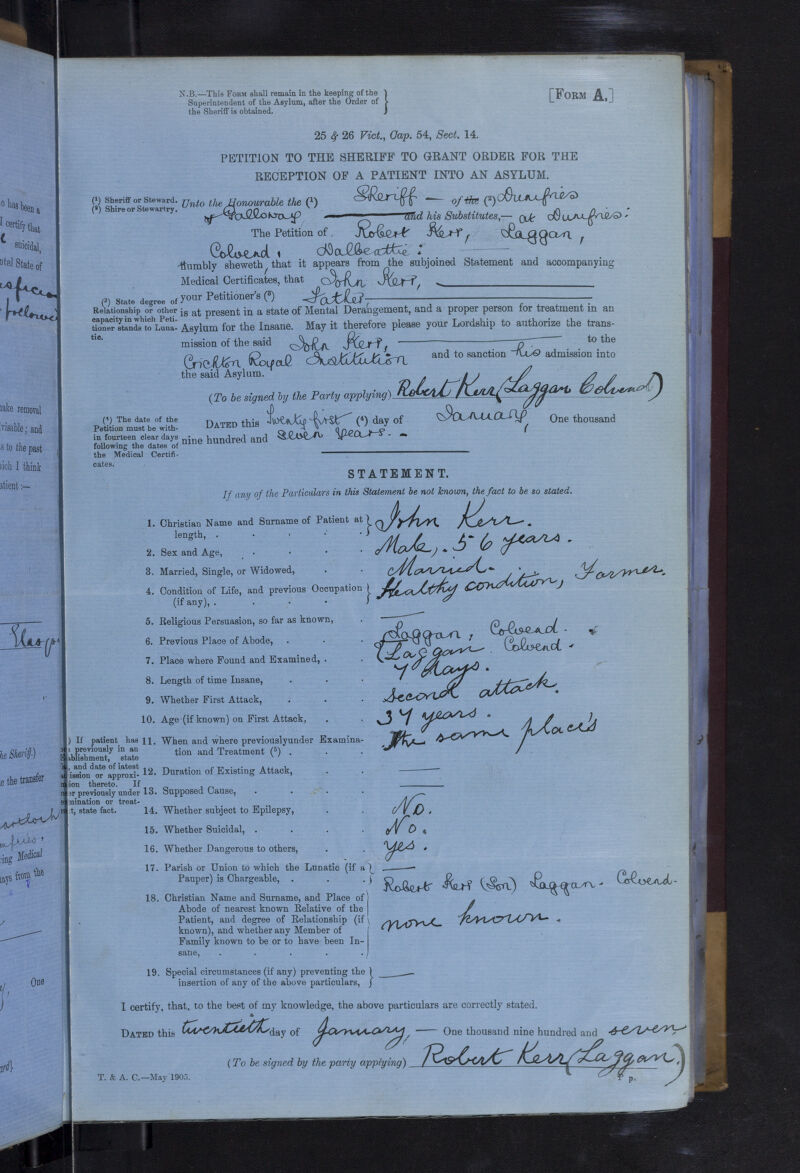 N.B.—This Form shall remain in the keeping of the
Superintendent of the Asylum, after the Order of
the Sheriff is obtained.
[Form A.]
25 & 26 Vict., Cap. 54, Sect. 14.
PETITION TO THE SHERIFF TO GRANT ORDER FOR THE
RECEPTION OF A PATIENT INTO AN ASYLUM.
(1) Sheriff or Steward.
(2) Shire or Stewartry.
Unto the Honourable the (1) Sheriff — of the (2) Dumfries
& Galloway — and his Substitutes,— at Dumfries:
The Petition of Robert Kerr, Laggan,
Colvend, Dalbeattie:
Humbly sheweth, that it appears from the subjoined Statement and accompanying
Medical Certificates, that John Kerr,
(3) State degree of
Relationship or other
capacity in which Peti-
tioner stands to Luna-
tic.
your Petitioner's (3) Father
is at present in a state of Mental Derangement, and a proper person for treatment in an
Asylum for the Insane. May it therefore please your Lordship to authorize the trans-
mission of the said John Kerr, — to the
Crichton Royal Institution and to sanction his admission into
the said Asylum.
(To be signed by the Party applying) Robert Kerr (Laggan Colvend)
(4) The date of the
Petition must be with-
in fourteen clear days
following the dates of
the Medical Certifi-
cates.
Dated this Twenty first (4) day of January, One thousand
nine hundred and Seven years. -
STATEMENT.
If any of the Particulars in this Statement be not known, the fact to be so stated.
1. Christian Name and Surname of Patient at
length, . . . . John Kerr.
2. Sex and Age, . . . . Male, . 56 years.
3. Married, Single, or Widowed, . . Married.
4. Condition of Life, and previous Occupation
(if any), . . . . Healthy condition, Farmer.
5. Religious Persuasion, so far as known, . —
6. Previous Place of Abode, . . . Laggan, Colvend.
7. Place where Found and Examined, . . Laggan. Colvend.
8. Length of time Insane, . . . 7 days.
9. Whether First Attack, . . . Second attack.
10. Age (if known) on First Attack, . . 37 years.
) If patient has
previously in an
Establishment, state
, and date of latest
mission or approxi-
ion thereto. If
er previously under
mination or treat-
t, state fact.
11. When and where previouslyunder Examina-
tion and Treatment (5) . . . The same places
12. Duration of Existing Attack, . . —
13. Supposed Cause, . . . . —
14. Whether subject to Epilepsy, . . No.
15. Whether Suicidal, . . . . No.
16. Whether Dangerous to others, . . Yes.
17. Parish or Union to which the Lunatic (if a
Pauper) is Chargeable, . . . —
Robert Kerr (Son) Laggan. Colvend.
18. Christian Name and Surname, and Place of
Abode of nearest known Relative of the
Patient, and degree of Relationship (if
known), and whether any Member of
Family known to be or to have been In-
sane, . . . . . none known.
19. Special circumstances (if any) preventing the
insertion of any of the above particulars, —
I certify, that, to the best of my knowledge, the above particulars are correctly stated.
Dated this twentieth day of January, — One thousand nine hundred and seven
(To be signed by the party applying) Robert Kerr (Laggan.)
T. & A. C.—May 1905.
o has been a
I certify that
suicidal,
ntal State of
make removal
visable; and
s to the past
ich I think
atient:—
he Sheriff.)
e the transfer
ing Medical
ays from the
One